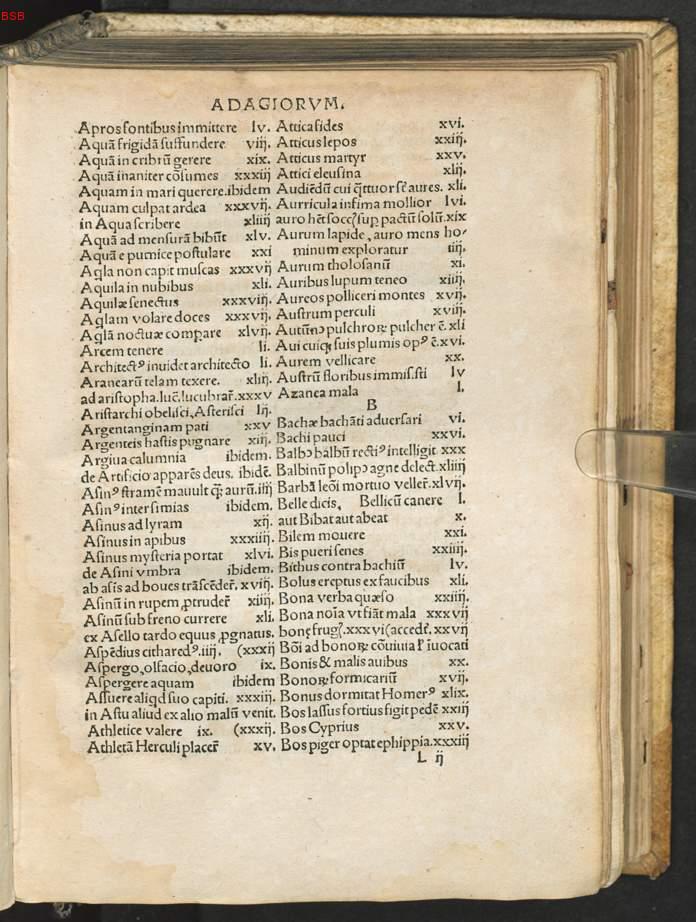 BSB
ADAGIORVM.
Apros fontibus immittere lv.
Aquā frigidā suffundere viij.
Aquā in cribrū gerere xix.
Aquā inaniter cōsumes xxxiij
Aquam in mari querere. ibidem
Aquam culpat ardea xxxvij.
in Aqua scribere xliiij
Aquā ad mensurā bibūt xlv.
Aquā e pumice postulare xxi
Aqla non capit muscas xxxvij
Aquila in nubibus xli.
Aquilæ senectus xxxviij.
Aqlam volare doces xxxvij.
Aqlā noctuæ compare xlvij.
Arcem tenere li.
Architectꝰ inuidet architecto li.
Aranearū telam texere. xliij.
ad aristopha. lucē. lucubrar̄. xxxv
Aristarchi obelisci, Asterisci lij.
Argentanginam pati xxv
Argenteis hastis pugnare xiij.
Argiua calumnia ibidem.
de Artificio apparēs deus. ibidē.
Asinꝰ stramē mauult q̄; aurū. iiij
Asinꝰ inter simias ibidem.
Asinus ad lyram xij.
Asinus in apibus xxxiiij.
Asinus mysteria portat xlvi.
de Asini vmbra ibidem.
ab asis ad boues trāscēder̄. xviij.
Asinū in rupem ꝓtruder̄ xiiij.
Asinū sub freno currere xli.
ex Asello tardo equus ꝓgnatus.
Aspēdius citharedꝰ. iiij. (xxxij
Aspergo, olfacio, deuoro ix.
Aspergere aquam ibidem
Assuere aliqd suo capiti. xxxiij.
in Astu aliud ex alio malū venit.
Athletice valere ix. (xxxij.
Athletā Herculi placer̄ xv.
Attica fides xvi.
Atticus lepos xxiij.
Atticus martyr xxv.
Attici eleusina xlij.
Audiēdū cui q̄ttuor sē aures. xli.
Aurricula infima mollior lvi.
auro hēt soccꝭ sup pactū solū. xix
Aurum lapide, auro mens ho/
minum exploratur iiij.
Aurum tholosanū xi.
Auribus lupum teneo xiiij.
Aureos polliceri montes xvij.
Austrum perculi xviij.
Autūnꝰ pulchroꝝ pulcher ē. xli
Aui cuiqꝫ suis plumis opꝰ ē. xvi.
Aurem vellicare xx.
Austrū floribus immis. sti lv
Azanea mala l.
B
Bachæ bachāti aduersari vi.
Bachi pauci xxvi.
Balbꝰ balbū rectiꝰ intelligit xxx
Balbinū polipꝰ agne delect. xliiij
Barbā leōi mortuo veller̄. xlvij.
Belle dicis, Bellicū canere l.
aut Bibat aut abeat x.
Bilem mouere xxi.
Bis pueri senes xxiiij.
Bithus contra bachiū lv.
Bolus ereptus ex faucibus xli.
Bona verba quæso xxiiij.
Bona noīa vt fiāt mala xxxvij
bonę frugꝭ. xxxvi (accedēt. xxvij
Bōi ad bonoꝝ cōuiuia īuocati
Bonis & malis auibus xx.
Bonoꝝ formicariū xvij.
Bonus dormitat Homerꝰ xlix.
Bos lassus fortius figit pedē xxiij
Bos Cyprius xxv.
Bos piger optat ephippia. xxxiij
L ij